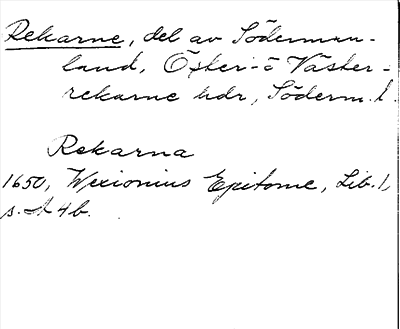 Rekarne, del av Söderman-
land, Öster- o Väster-
rekarne hdr, Söderm. l.
Rekarna
1650, Wexionius Epitome, Lib. 1,
s. A 4 b.